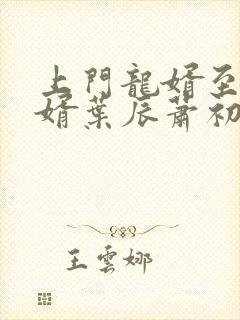 上門龍婿至
婿葉辰蕭初
王雲娜